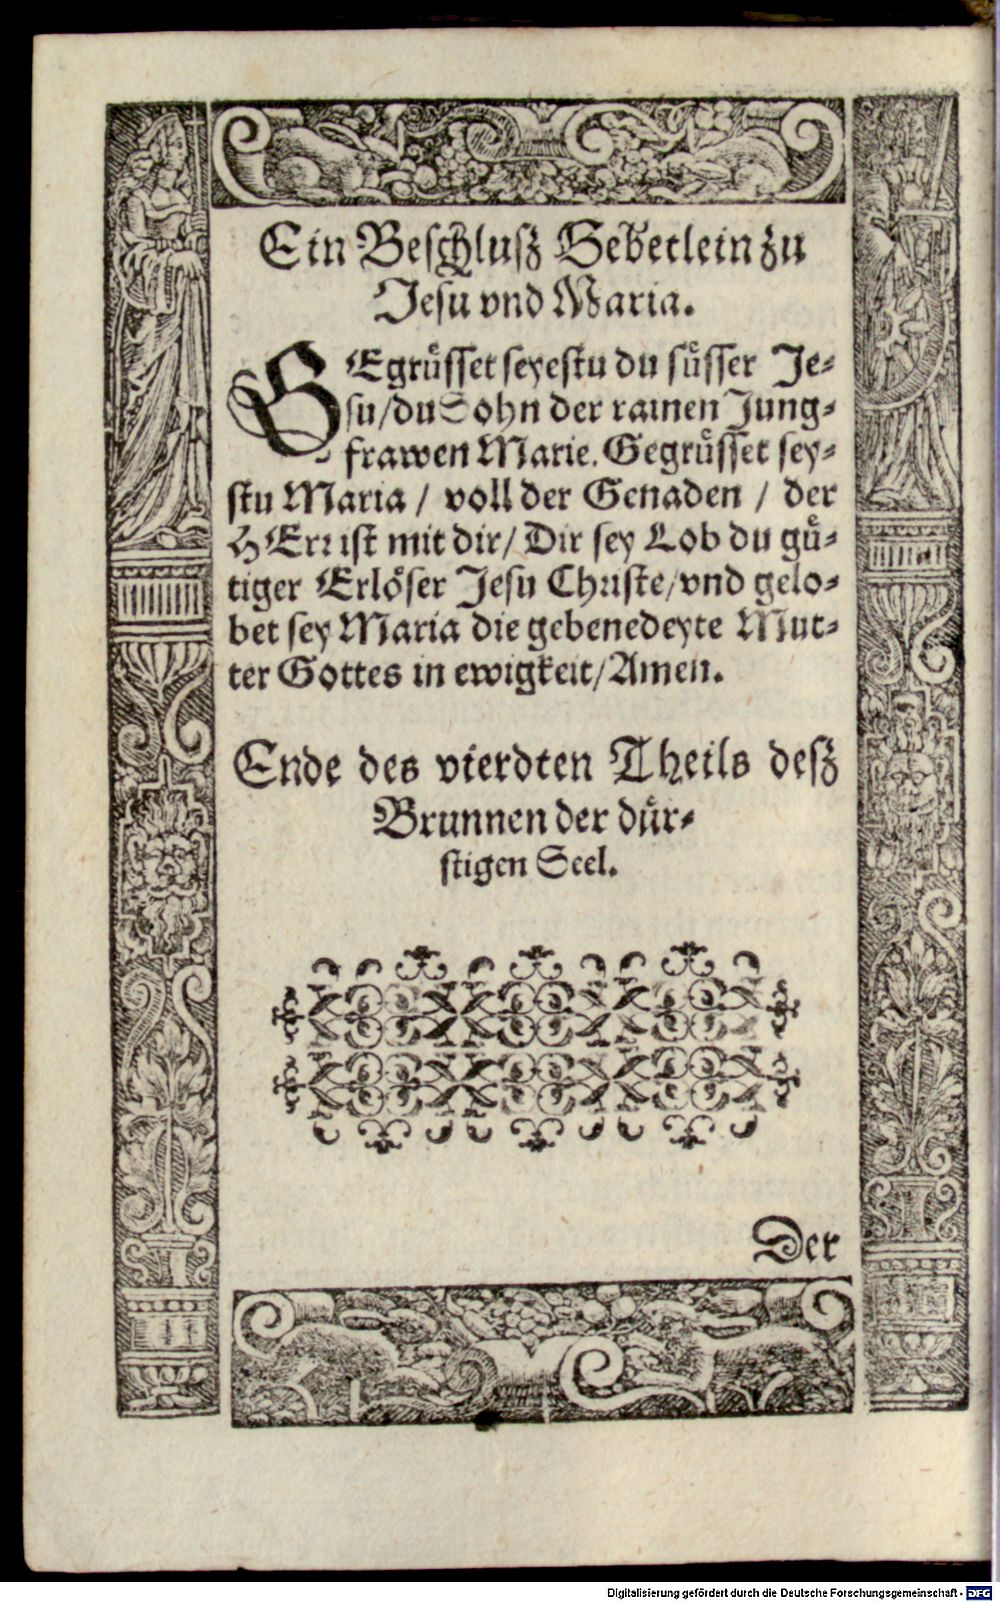 Ein Beschlusz Gebetlein zu
Jesu vnd Maria.
GEgruͤsset seyestu du suͤsser Je⸗
su/du Sohn der rainen Jung⸗
frawen Marie. Gegruͤsset sey⸗
stu Maria / voll der Genaden / der
HErr ist mit dir/ Dir sey Lob du guͤ⸗
tiger Erloͤser Jesu Christe/vnd gelo⸗
bet sey Maria die gebenedeyte Mut⸗
ter Gottes in ewigkeit/Amen.
Ende des vierdten Theils desz
Brunnen der duͤr⸗
stigen Seel.
Der
Digitalisierung gefördert durch die Deutsche Forschungsgemeinschaft - DFG